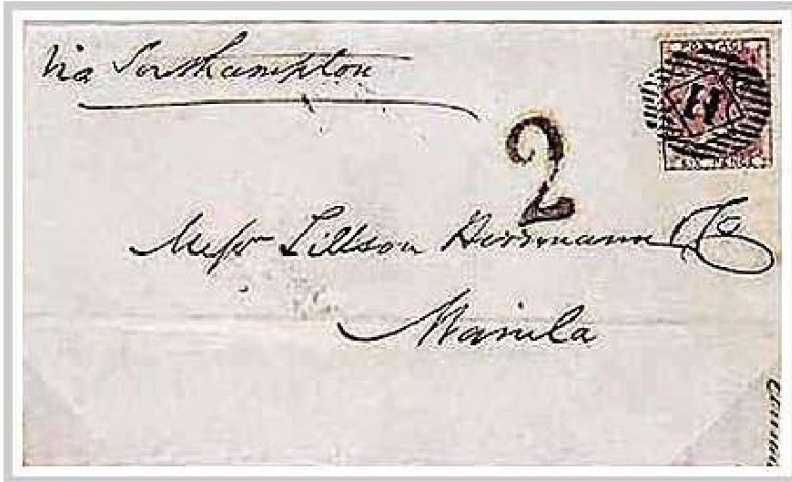 Via Southampton
POSTAGE
SIX PENCE
2
Messr Tillson Herrmann & Co
Manila